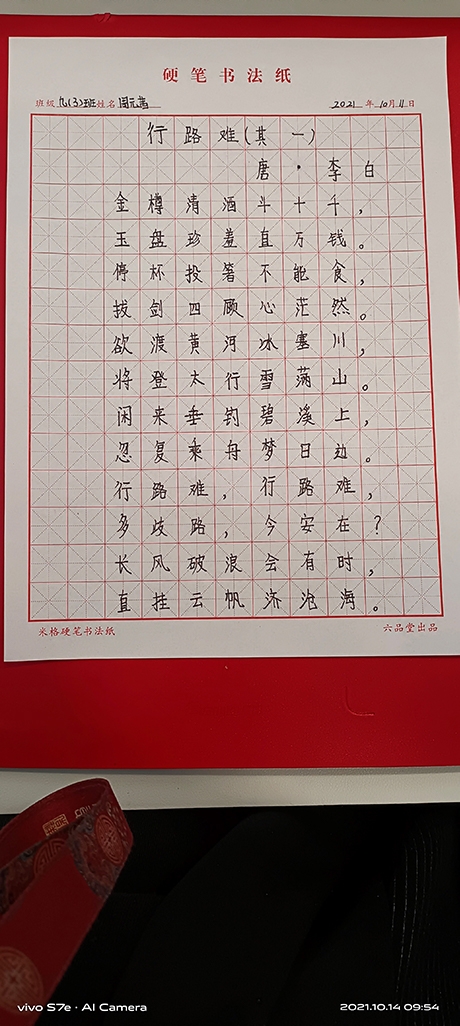 硬笔书法纸
班级 九(3)班 姓名 周元 2021 年 10 月 11 日
行路难(其一)
唐·李白
金樽清酒斗十千，
玉盘珍羞直万钱。
停杯投箸不能食，
拔剑四顾心茫然。
欲渡黄河冰塞川，
将登太行雪满山。
闲来垂钓碧溪上，
忽复乘舟梦日边。
行路难，行路难，
多歧路，今安在？
长风破浪会有时，
直挂云帆济沧海。
米格硬笔书法纸 六品堂出品
vivo S7e · AI Camera 2021.10.14 09:54